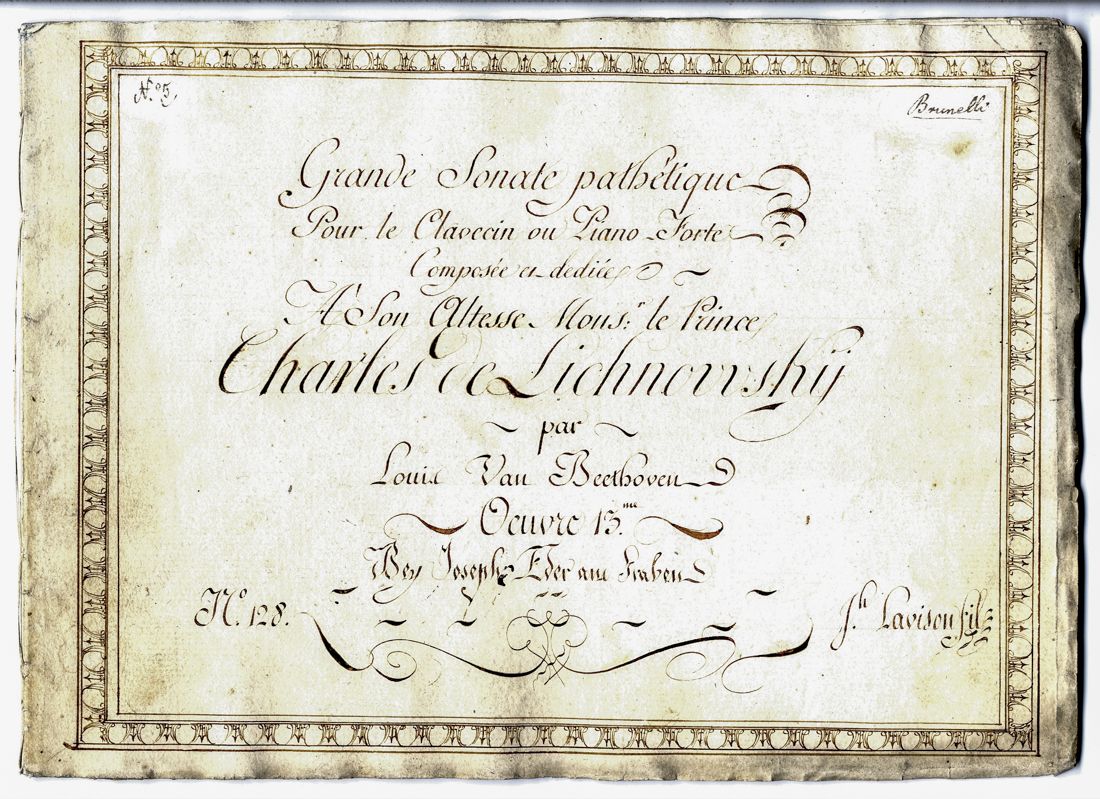 N.º 5.
Brunelli
Grande Sonate pathétique
Pour le Clavecin ou Piano-Forte
Composée et dediée
A Son Altesse Mons.r le Prince
Charles de Lichnovvskÿ
par
Louis Van Beethoven
Oeuvre 13.me
Bey Joseph Eder am Graben
N.º 128.
J.h Lavison fil